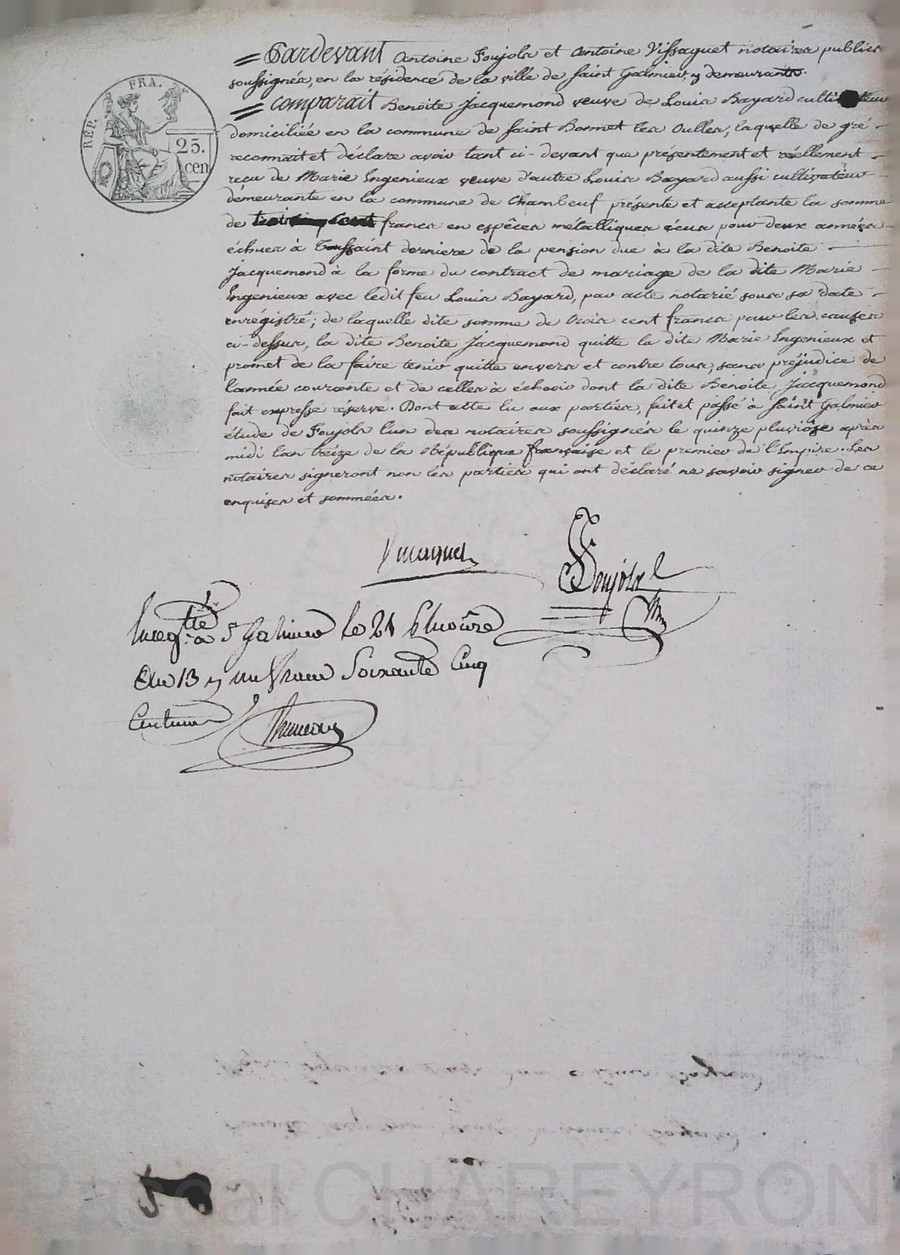 RÉP. FRA.
25.
cen
Pardevant Antoine Foujols et Antoine Vissaguet notaires publics
soussignés, en la résidence de la ville de Saint Galmier y demeurants.
Comparait Benoite Jacquemond veuve de Louis Bayard
domiciliée en la commune de Saint Bonnet les Oulles, laquelle de gré
reconnait et déclare avoir tant ci-devant que présentement et réellement
reçu de Marie Ingenieux veuve d'autre Louis Bayard aussi cultivateur
demeurante en la commune de Chambeuf présente et acceptante la somme
de francs en espèces métalliques écus pour deux années
échues à Toussaint derniere de la pension due à la dite Benoite
Jacquemond à la forme du contract de mariage de la dite Marie
Ingenieux avec ledit feu Louis Bayard, par acte notarié sous sa date
enrégistré; de laquelle dite somme de trois cent francs pour les causes
ci-dessus, la dite Benoite Jacquemond quitte la dite Marie Ingenieux et
promet de la faire tenir quitte envers et contre tous, sans préjudice de
l'année courante et de celles à échoir dont la dite Benoite Jacquemond
fait expresse réserve. Dont acte lu aux parties, fait et passé à Saint Galmier
étude de Foujols l'un des notaires soussignés le quinze pluviôse après
midi l'an treize de la République française et le premier de l'Empire. Les
notaires signeront non les parties qui ont déclaré ne savoir signer de ce
enquises et sommées.
Foujols
Enregtré à St Galmier le 21 Pluviôse
an 13 un franc Soixante Cinq
Centimes
Pascal CHAREYRON